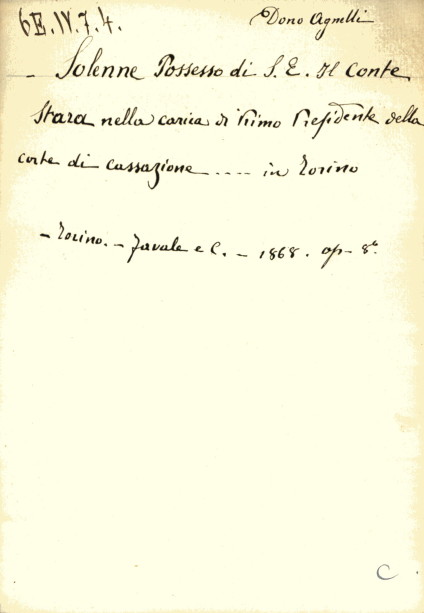 6E.IV.7.4.
Dono Agnelli
- Solenne Possesso di S. E. Il Conte
Stara nella carica di Primo Presidente della
corte di cassazione .... in Torino
- Torino. - Favale e C. - 1868. op- 8°.
C